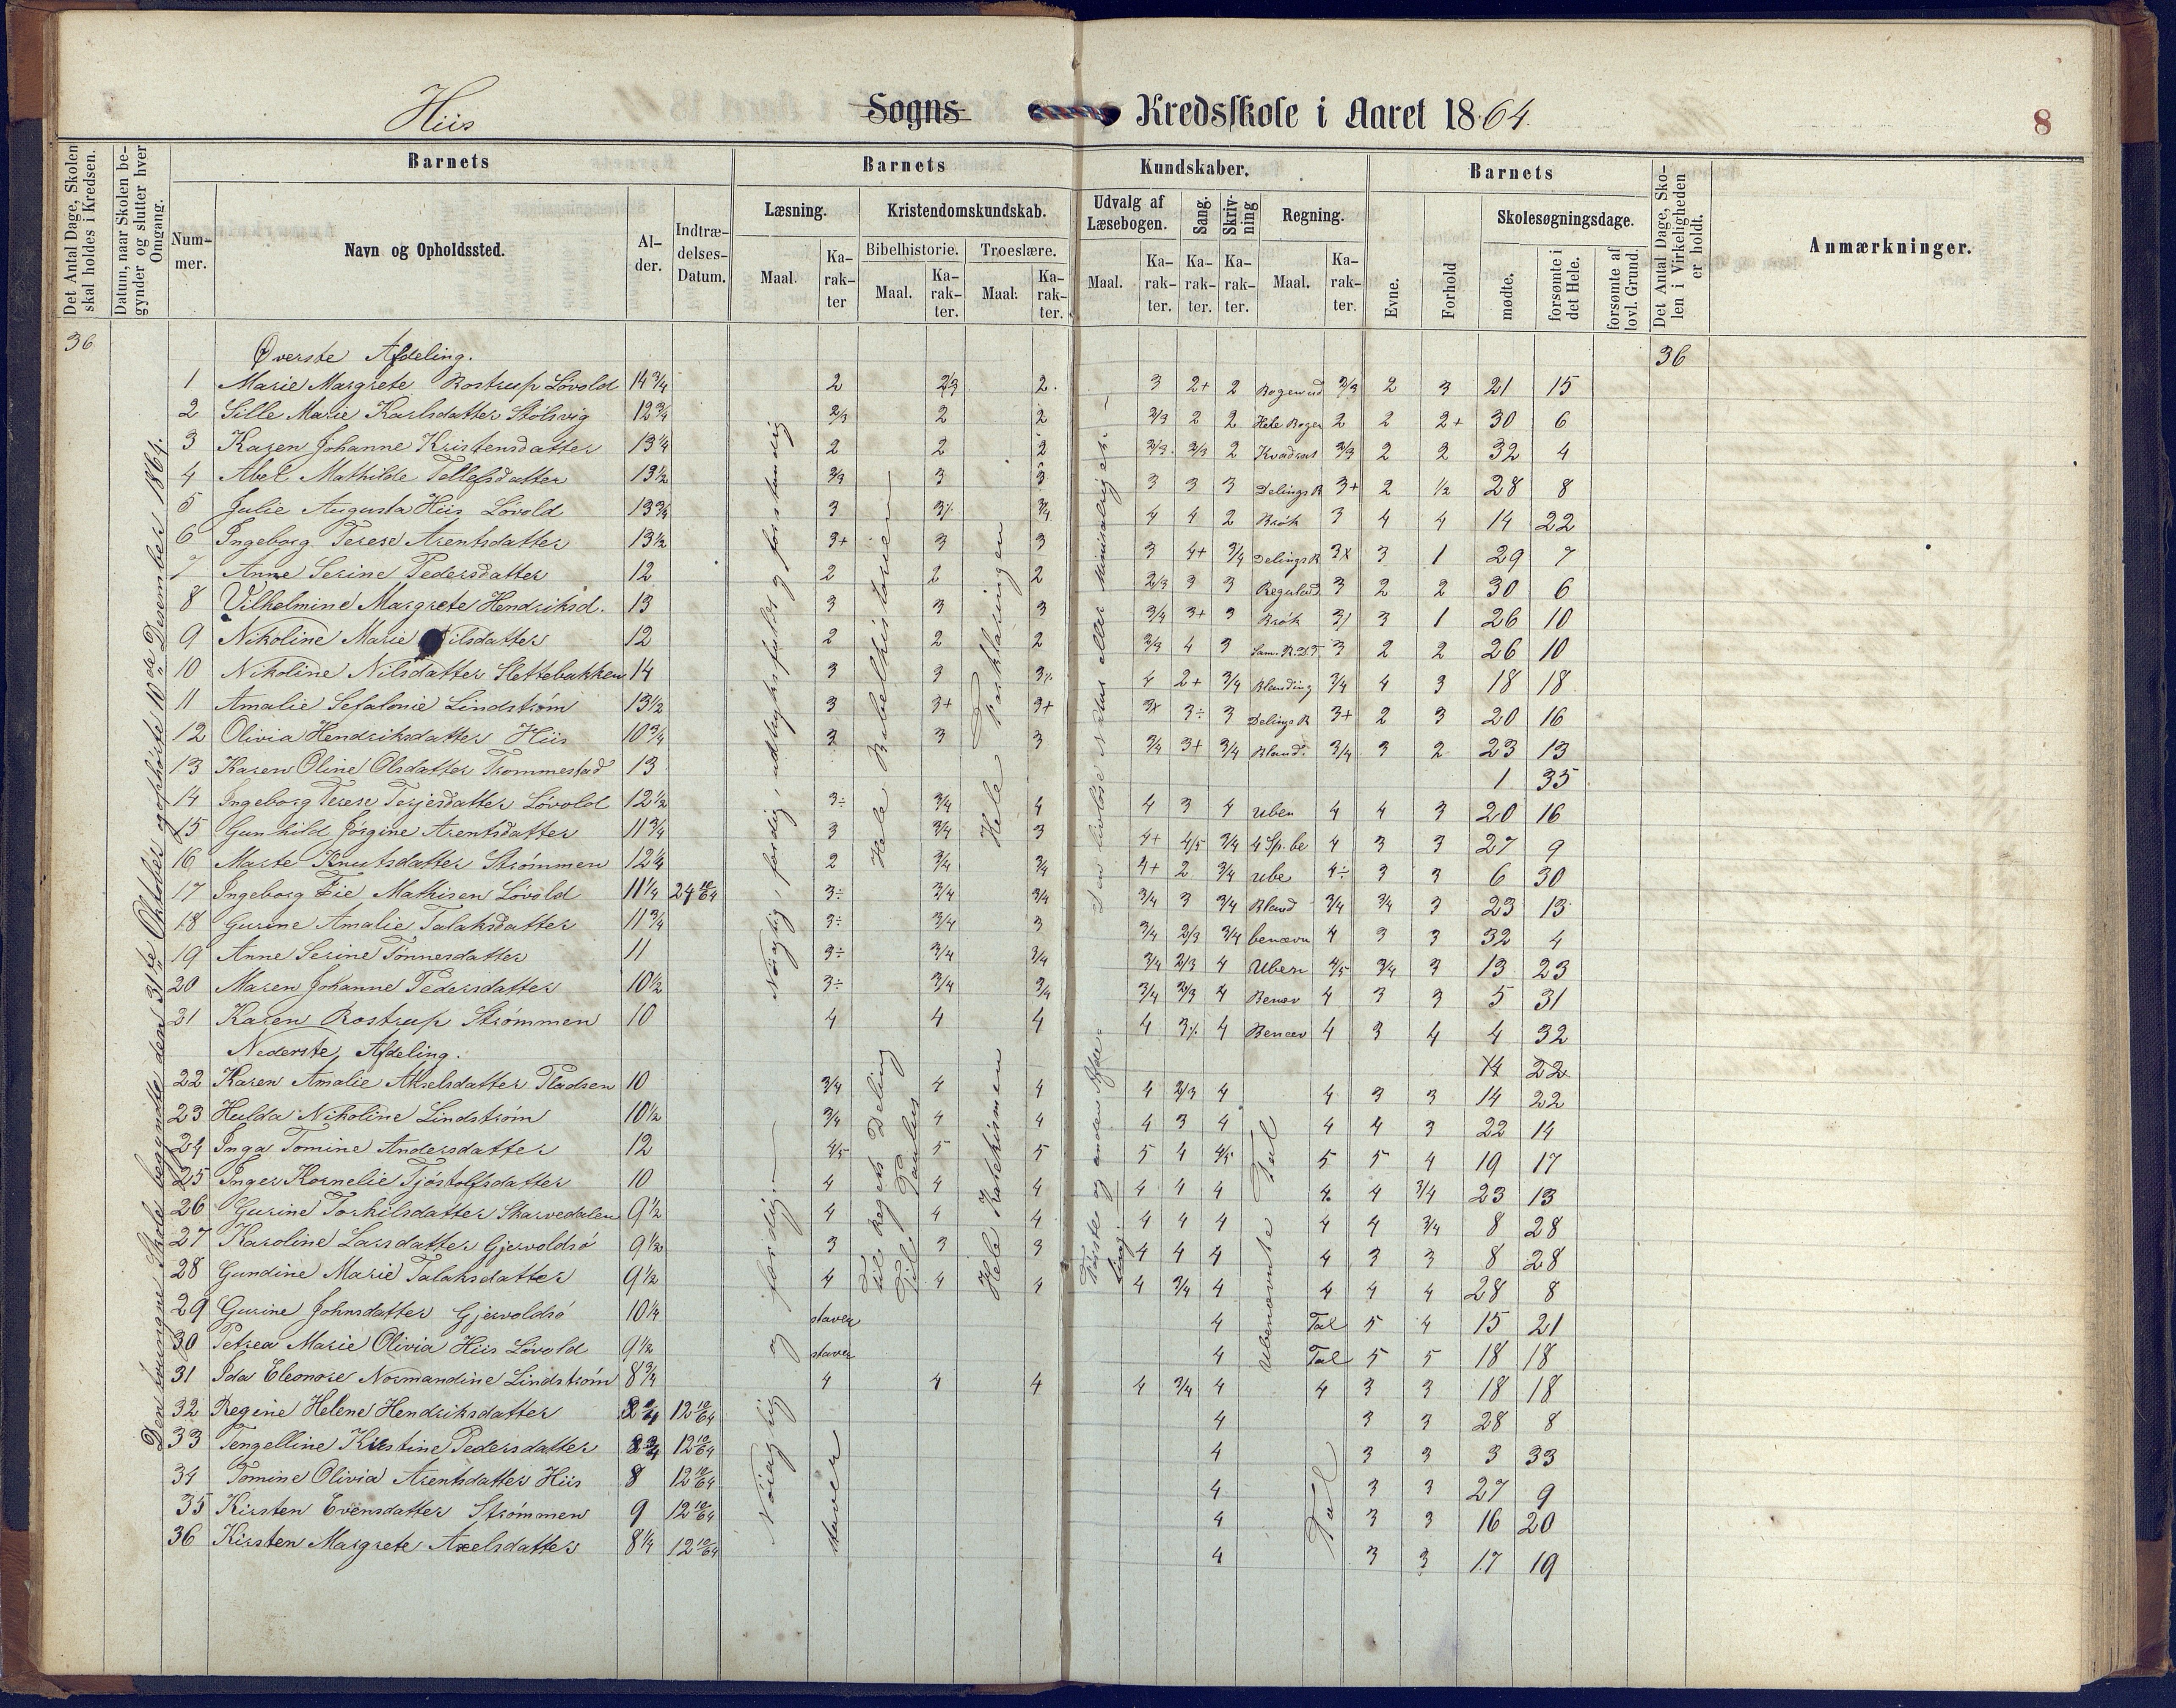 Hiis Sogns Kredsskole i Aaret 1864. 8
Det Antal Dage, Skolen skal holdes i Kredsen.
Datum, naar Skolen begynder og slutter hver Omgang.
Barnets
Nummer.
Navn og Opholdssted.
Alder.
Indtrædelses-Datum.
Barnets Kundskaber.
Læsning.
Maal.
Karakter
Kristendomskundskab.
Bibelhistorie.
Maal.
Karakter.
Troeslære.
Maal.
Karakter.
Udvalg af Læsebogen.
Maal.
Karakter.
Sang.
Karakter.
Skrivning
Karakter.
Regning.
Maal.
Karakter.
Barnets
Evne.
Forhold
Skolesøgningsdage.
mødte.
forsømte i det Hele.
forsømte af lovl. Grund.
Det Antal Dage, Skolen i Virkeligheden er holdt.
Anmærkninger.
36 36
Øverste Afdeling.
1 Marie Margrete Rostrup Løvold 14 3/4 2 2/3 2. 3 2+ 2 2/3 2 3 21 15
2 Sille Marie Karlsdatter Stølsvig 12 3/4 2/3 2 2 2/3 2 2 Hele Bogen 2 2 2+ 30 6
3 Karen Johanne Kristensdatter 13 1/4 2 2 2 2/3 2/3 2 Kvadrat 2/3 2 2 32 4
4 Abel Mathilde Tellefsdatter 13 1/2 2/3 3 3 3 3 3 Delings R 3+ 2 1/2 28 8
5 Julie Augusta Hiis Løvold 13 3/4 3 3% 3/4 4 4 2 Brøk 3 4 4 14 22
6 Ingeborg Terese Arentsdatter 13 1/2 3+ 3 3 3 4+ 3/4 Delings R 3x 3 1 29 7
7 Anne Serine Pedersdatter 12 2 2 2 2/3 3 3 3 2 2 30 6
8 Vilhelmine Margrete Hendriksd. 13 3 3 3 3/4 3+ 3 Brøk 3 1 26 10
9 Nikoline Marie Nilsdatter 12 2 2 2 2/3 4 3 3 2 2 26 10
10 Nikoline Nilsdatter Slettebakken 14 3 3 3% 4 2+ 3/4 Blanding 3/4 4 3 18 18
11 Amalie Sefalonie Lindstrøm 13 1/2 3 3+ 3+ 3x 3÷ 3 Delings R 3+ 2 3 20 16
12 Olivia Hendriksdatter Hiis 10 3/4 3 3 3 3/4 3+ 3/4 Bland. 3/4 3 2 23 13
13 Karen Oline Olsdatter Trommestad 13 1 35
14 Ingeborg Terese Terjesdatter Løvold 12 1/2 3÷ 3/4 4 4 3 4 Uben 4 4 3 20 16
15 Gunhild Jørgine Arentsdatter 11 3/4 3 3/4 3 4+ 4/5 3/4 4 Sp. be 4 3 3 27 9
16 Marte Knutsdatter Strømmen 12 1/4 2 3/4 3/4 4+ 2 3/4 Ube 4÷ 3 3 6 30
17 Ingeborg Mathisen Løvold 11 1/4 24 10/64 3÷ 3/4 3/4 3/4 3 3/4 Bland 3/4 3/4 3 23 13
18 Gurine Amalie Talaksdatter 11 3/4 3÷ 3/4 3 3/4 2/3 3/4 benævn 4 3 3 32 4
19 Anne Serine Tønnesdatter 11 3÷ 3/4 3/4 3/4 2/3 4 Uben 4/5 3/4 3 13 23
20 Maren Johanne Pedersdatter 10 1/2 3÷ 3/4 3/4 3/4 2/3 4 Benæv 4 3 3 5 31
21 Karen Rostrup Strømmen 10 4 4 4 4 3% 4 Benæv 4 3 4 4 32
Nederste Afdeling. 14 22
22 Karen Amalie Akselsdatter Pladsen 10 3/4 4 4 4 2/3 4 4 3 3 14 22
23 Hulda Nikoline Lindstrøm 10 1/2 3/4 4 4 4 3 4 4 4 3 22 14
24 Inga Tomine Andersdatter 12 4/5 5 5 5 4 4/5 5 5 4 19 17
25 Inger Kornelie Tjøstolfsdatter 10 4 4 4 4 4 4 4 4 3/4 23 13
26 Gurine Torkilsdatter Skarvedalen 9 1/2 4 4 4 4 4 4 4 4 3/4 8 28
27 Karoline Larsdatter Gjervoldsø 9 1/2 3 3 3 4 4 4 4 3 3 8 28
28 Gundine Marie Talaksdatter 9 1/2 4 4 4 4 3/4 4 4 4 4 28 8
29 Gurine Johnsdatter Gjervoldsø 10 1/4 staver 4 Tal 5 4 15 21
30 Petrea Marie Olivia Hiis Løvold 9 1/2 staver 4 Tal 5 5 18 18
31 Ida Eleonore Normandine Lindstrøm 8 3/4 4 4 4 4 3/4 4 4 3 3 18 18
32 Regine Helene Hendriksdatter 12 10/64 4 3 3 28 8
33 Tengelline Kirstine Pedersdatter 12 10/64 4 3 3 3 33
34 Tomine Olivia Arentsdatter Hiis 8 12 10/64 4 3 3 27 9
35 Kirsten Evensdatter Strømmen 9 12 10/64 4 3 3 16 20
36 Kirsten Margrete Axelsdatter 8 1/4 12 10/64 4 3 3 17 19
Denne Skole begyndte den 31te Oktober ophørte 10de Desember 1864.
Nøiagtig, færdig, udtryksfuldt og forstandig
Hele Bibelhistorien
Hele Forklaringen
Den livløse Natur eller Mineralriget.
Nøiagtig og færdig.
Til Rigets Deling
Til Paulus
Hele Katekismen
Første og anden Afdeling.
Ubenævnte Tal
staver
Tal